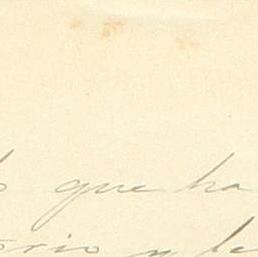 o que ha
orio y le